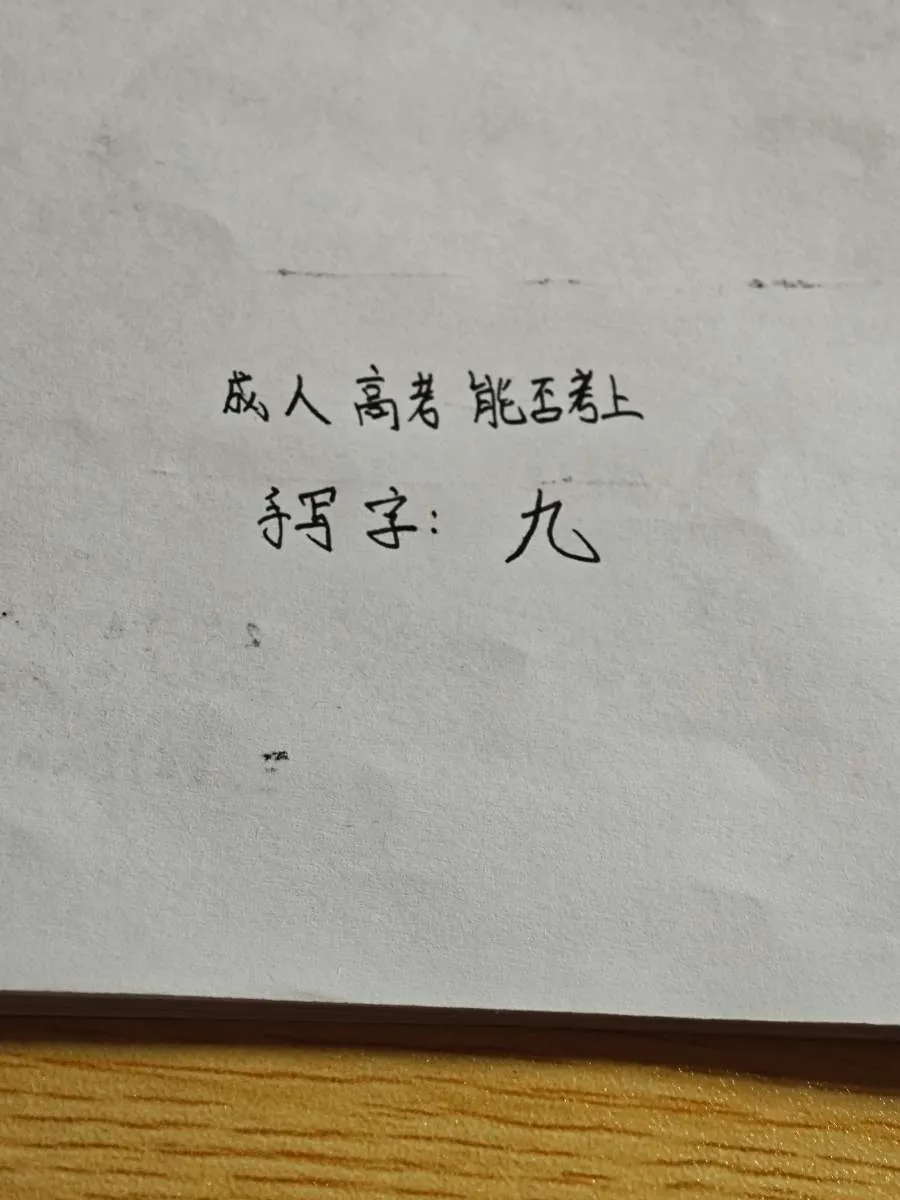 成人高考能否考上
手写字：九